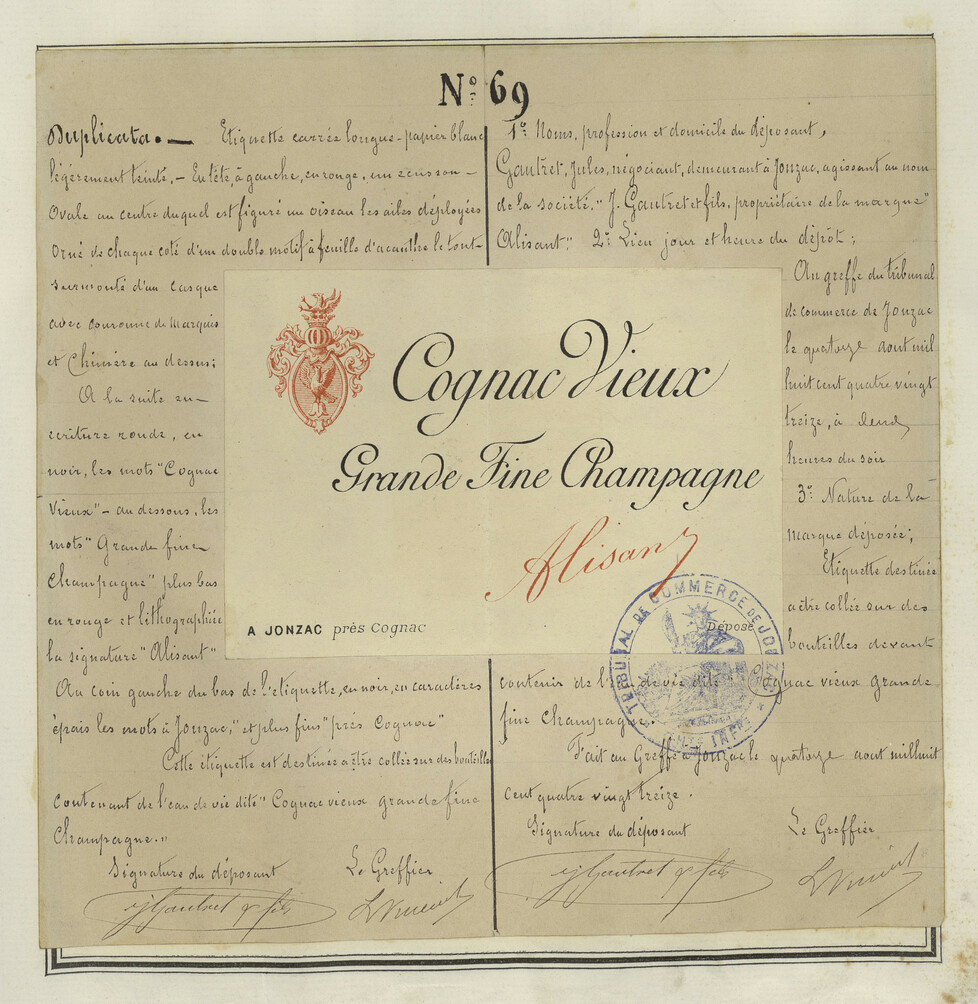 Nº 69
Duplicata. — Etiquette carrée longue - papier blanc
légérement teinté. - En tête, à gauche, en rouge, un écusson -
Ovale au centre duquel est figuré un oiseau les ailes déployées
Orné de chaque coté d'un double motif à feuille d'acanthe le tout -
surmonté d'un casque
avec couronne de Marquis
et Chimère au dessus;
A la suite en -
ecriture ronde, en
noir, les mots "Cognac
Vieux" - au dessous, les
mots "Grande fine
Champagne" plus bas
en rouge et lithographiée
la signature "Alisant"
Au coin gauche du bas de l'etiquette, en noir, en caractères
épais les mots à Jonzac," et plus fins "près Cognac"
Cette étiquette est destinée a être collée sur des bouteilles
contenant de l'eau de vie dite "Cognac vieux grande fine
Champagne."
Signature du déposant Le Greffier
J Gautret & fils
1º Noms, profession et domicile du déposant,
Gautret, Jules, négociant, demeurant à Jonzac, agissant au nom
de la société, "J. Gautret et fils, propriétaire de la marque"
Alisant". 2º Lieu jour et heure du dépôt;
Au greffe du tribunal
de commerce de Jonzac
le quatorze aout mil
huit cent quatre vingt
treize, à deux
heures du soir
3º Nature de la
marque déposée;
Etiquette destinée
a etre collée sur des
bouteilles devant
contenir de l'eau de vie dite Cognac vieux grande
fine Champagne.
Fait au Greffe à Jonzac le quatorze aout mil huit
cent quatre vingt treize.
Signature du déposant Le Greffier
J Gautret & fils
Cognac Vieux
Grande Fine Champagne
Alisant
A JONZAC près Cognac
Déposé
TRIBUNAL DE COMMERCE DE JONZAC